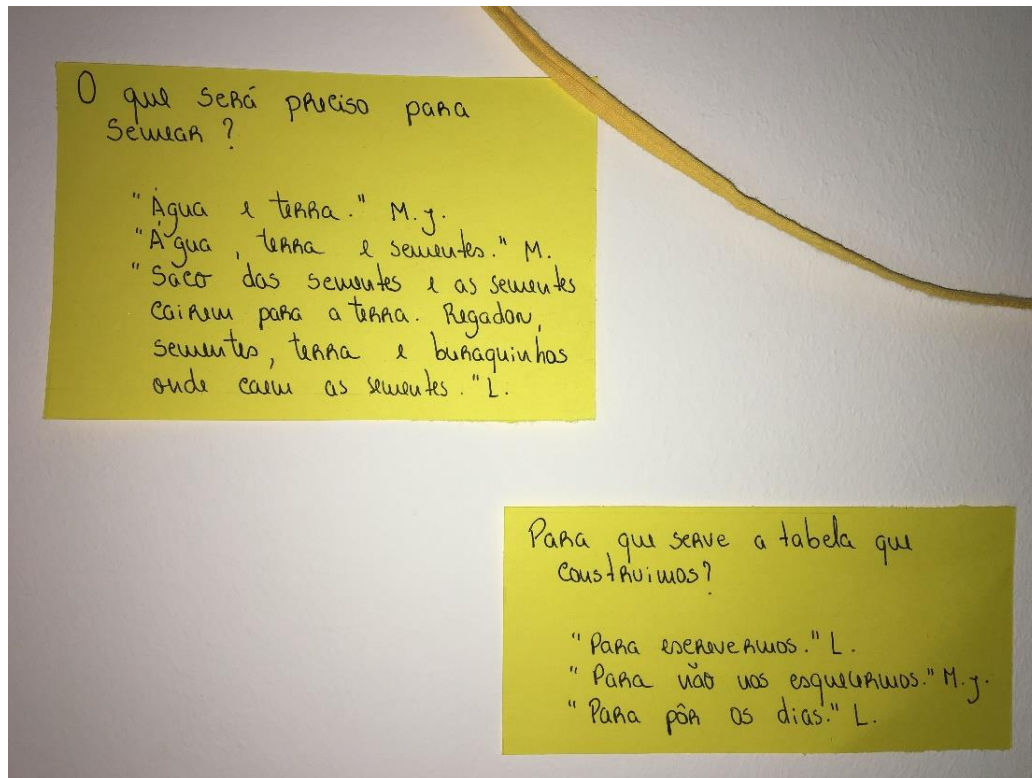 O que será preciso para
semear?
"Água e terra." M.J.
"Água, terra e sementes." M.
"Saco das sementes e as sementes
cairem para a terra. Regador,
sementes, terra e buraquinhos
onde caem as sementes." L.
Para que serve a tabela que
construimos?
"Para escrevermos." L.
"Para não nos esquecermos." M.J.
"Para pôr os dias." L.